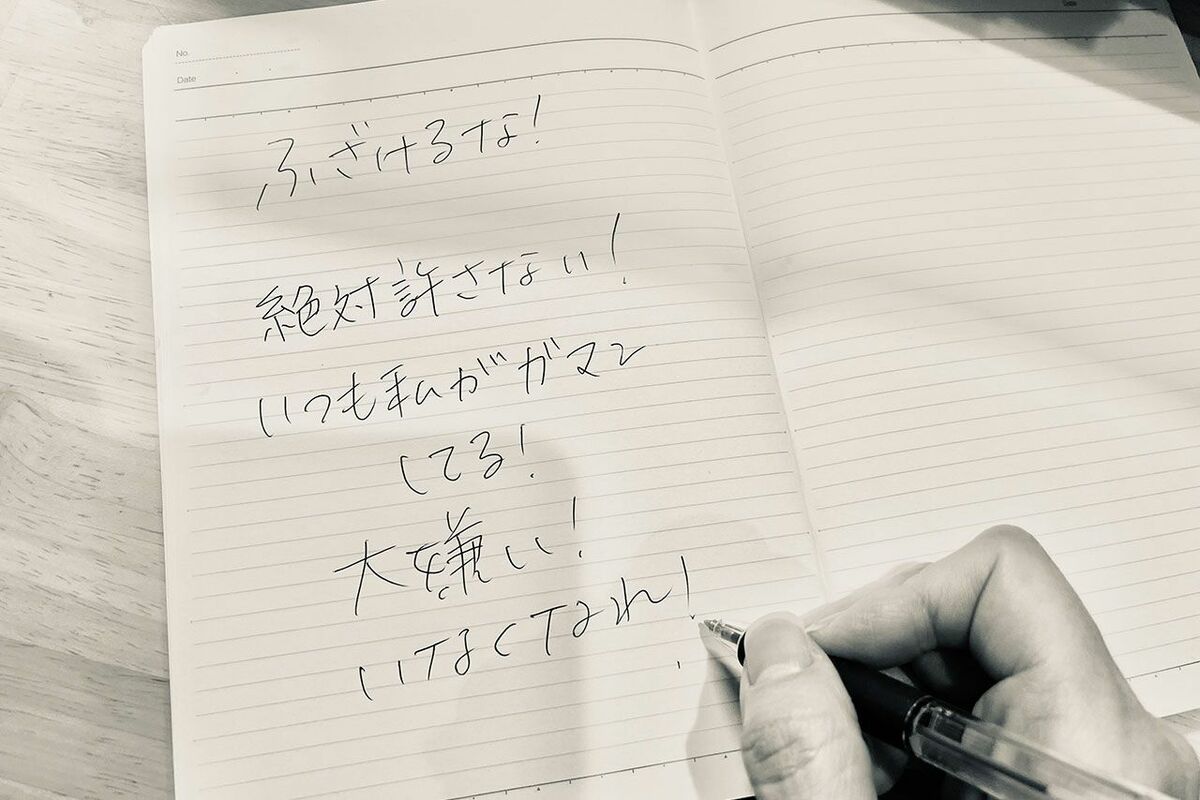 No.
Date
Date
ふざけるな!
絶対許さない!
いつも私がガマン
してる!
大嫌い!
いなくなれ!